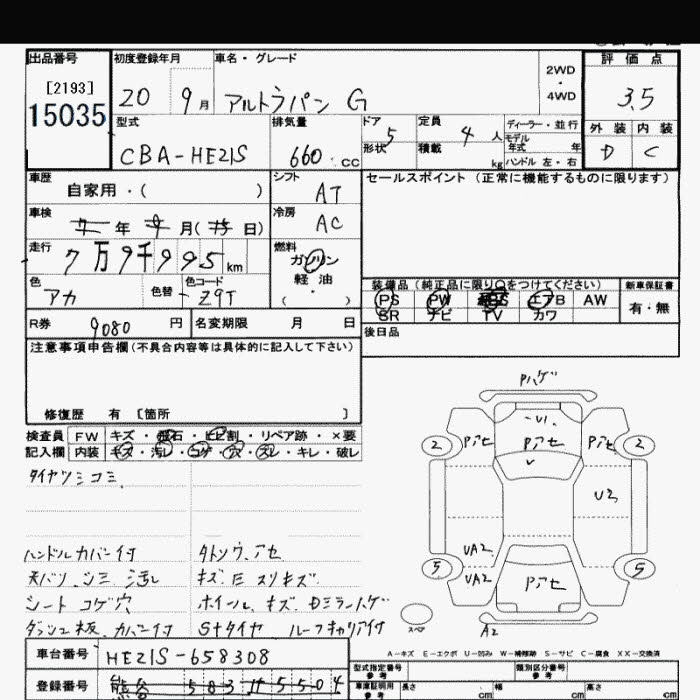 出品番号 初度登録年月 車名・グレード 評価点
[2193] 2WD
・
4WD
15035 20 9月 アルトラパン G 3.5
型式 排気量 ドア 5 定員 4 人 ディーラー・並行 外装 内装
モデル年式 年
CBA-HE21S 660 cc 形状 積載 kg ハンドル 左・右 D C
車歴 シフト セールスポイント (正常に機能するものに限ります)
自家用・( ) AT
車検 冷房
年 月( 日) AC
走行 燃料
7万9千995km ガソリン
軽油
( ・ )
色 色替 色コード 装備品 (純正品に限り○をつけてください) 新車保証書
アカ Z9T PS PW エアB AW 有・無
SR ナビ TV カワ
R券 9080 円 名変期限 月 日 後日品
注意事項申告欄(不具合内容等は具体的に記入して下さい)
修復歴 有 〔箇所 〕
検査員 FW キズ・飛石・ヒビ割・リペア跡・×要
記入欄 内装 キズ・汚レ・コゲ・穴・スレ・キレ・破レ
タイヤツミコミ
ハンドルカバー付 タトソウ、アセ
天バリ、シミ 汚レ キズ、E スリキズ
シート コゲ穴 ホイール、キズ、Dミラーハゲ
ダッシュ板、カバー付 Sタイヤ ルーフキャリア付
Pハゲ
U1
2 Pアセ Pアセ Pアセ 2
U2
UA2
5 UA2 Pアセ 5
スペア A2
A-キズ E-エクボ U-凹み W-補修跡 S-サビ C-腐食 XX-交換済
車台番号 HE21S-658308
型式指定番号 類別区分番号
登録番号 熊谷 583 5504
車庫証明用参考 長さ cm 幅 cm 高さ cm